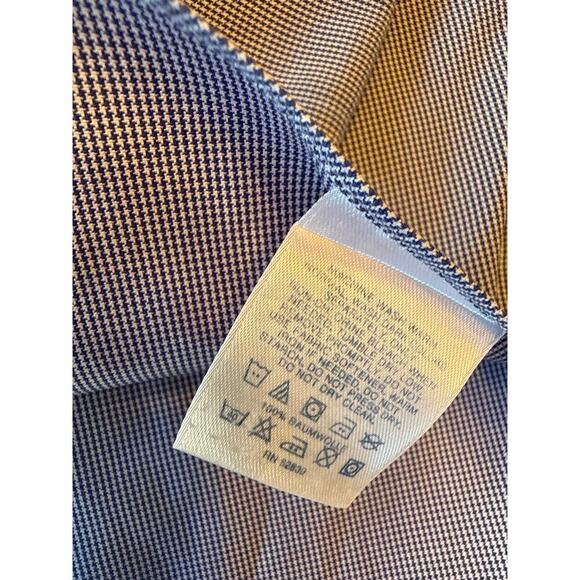 MACHINE WASH WARM
NORMAL. WASH DARK COLORS
SEPARATELY. ONLY
NON-CHLORINE BLEACH WHEN
NEEDED. TUMBLE DRY LOW
REMOVE PROMPTLY. DO NOT
USE FABRIC SOFTENER. WARM
IRON IF NEEDED. DO NOT
STARCH. DO NOT PRESS DRY.
DO NOT DRY CLEAN.
100% BAUMWOLLE
RN